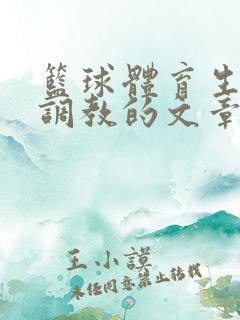 籃球體育生
調教的文章
王小謨
未經同意禁止轉載